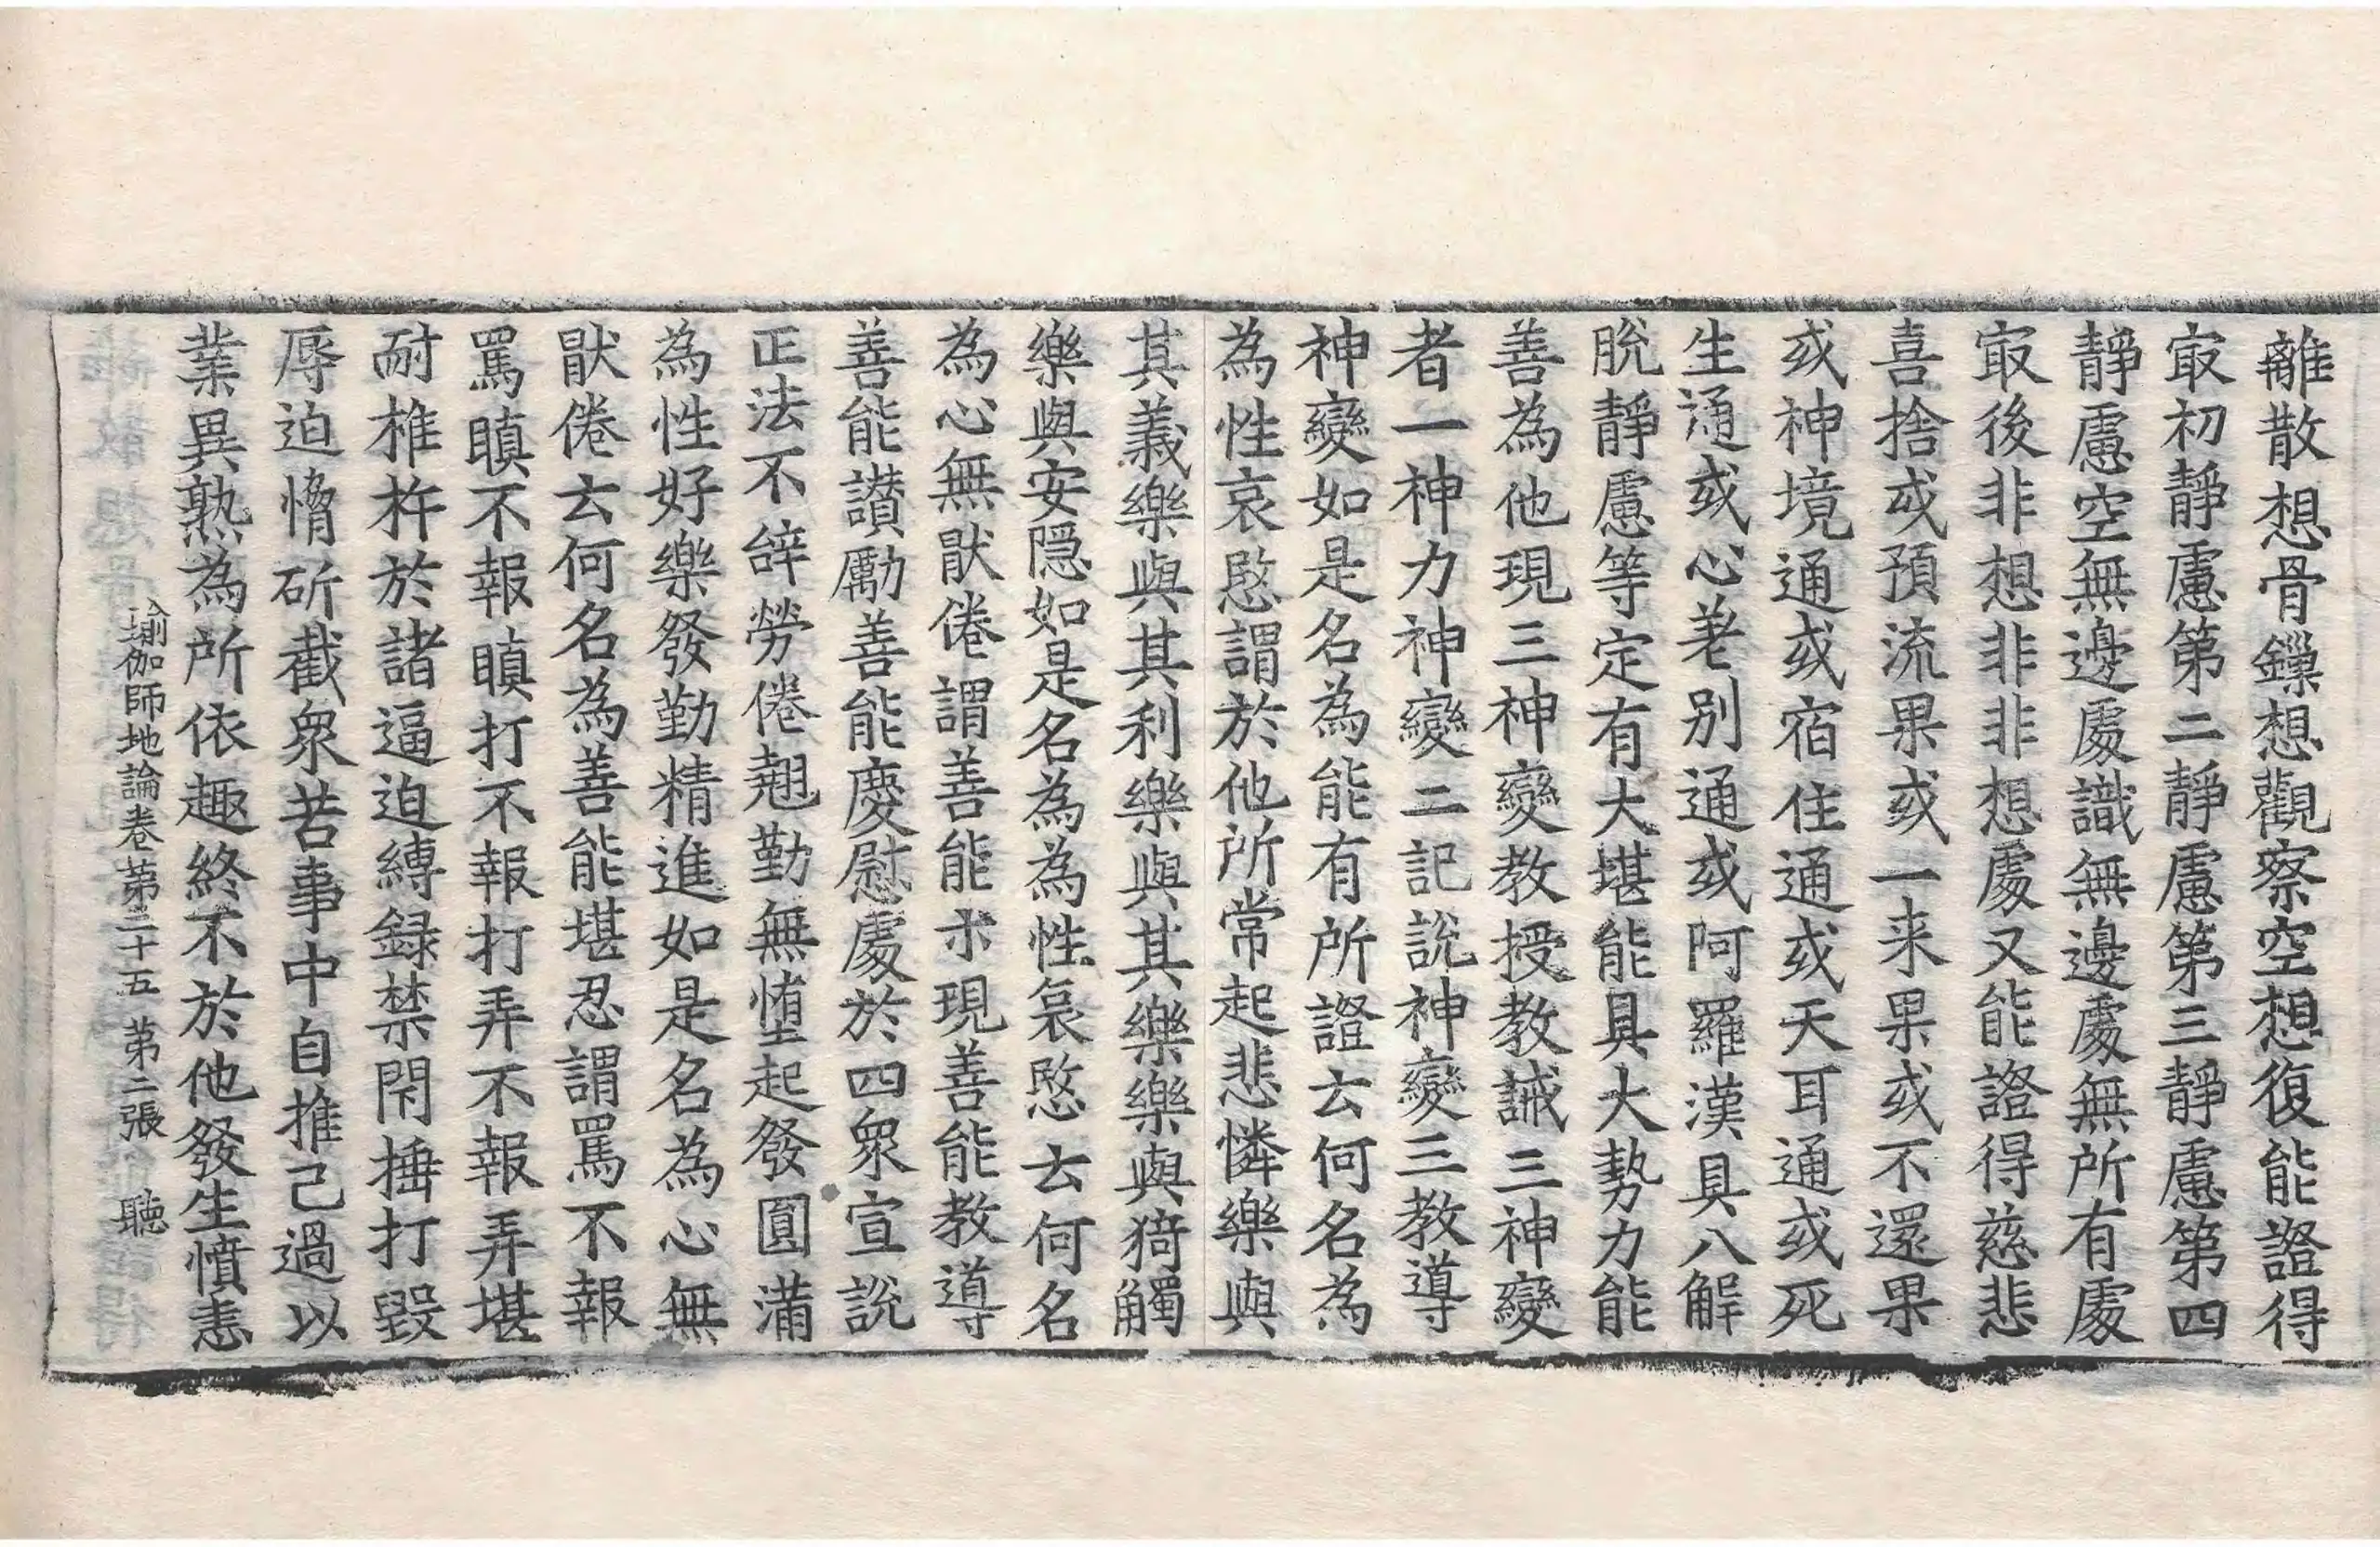 離散想骨鏁想觀察空想復能證得
㝡初靜慮第二靜慮第三靜慮第四
靜慮空無邊處識無邊處無所有處
㝡後非想非非想處又能證得慈悲
喜捨或預流果或一来果或不還果
或神境通或宿住通或天耳通或死
生通或心差別通或阿羅漢具八解
脫靜慮等定有大堪能具大勢力能
善為他現三神變教授教誡三神變
者一神力神變二記說神變三教導
神變如是名為能有所證云何名為
為性哀愍謂於他所常起悲憐樂與
其義樂與其利樂與其樂樂與猗觸
樂與安隱如是名為為性哀愍云何名
為心無猒倦謂善能示現善能教導
善能讃勵善能慶慰處於四衆宣說
正法不辝勞倦翹勤無憜起發圓滿
為性好樂發勤精進如是名為心無
猒倦云何名為善能堪忍謂罵不報
罵瞋不報瞋打不報打弄不報弄堪
耐椎杵於諸逼迫縛録禁閇捶打毀
辱迫愶斫截衆苦事中自推己過以
業異熟為所依趣終不於他發生憤恚
瑜伽師地論卷第二十五　第二張　聽